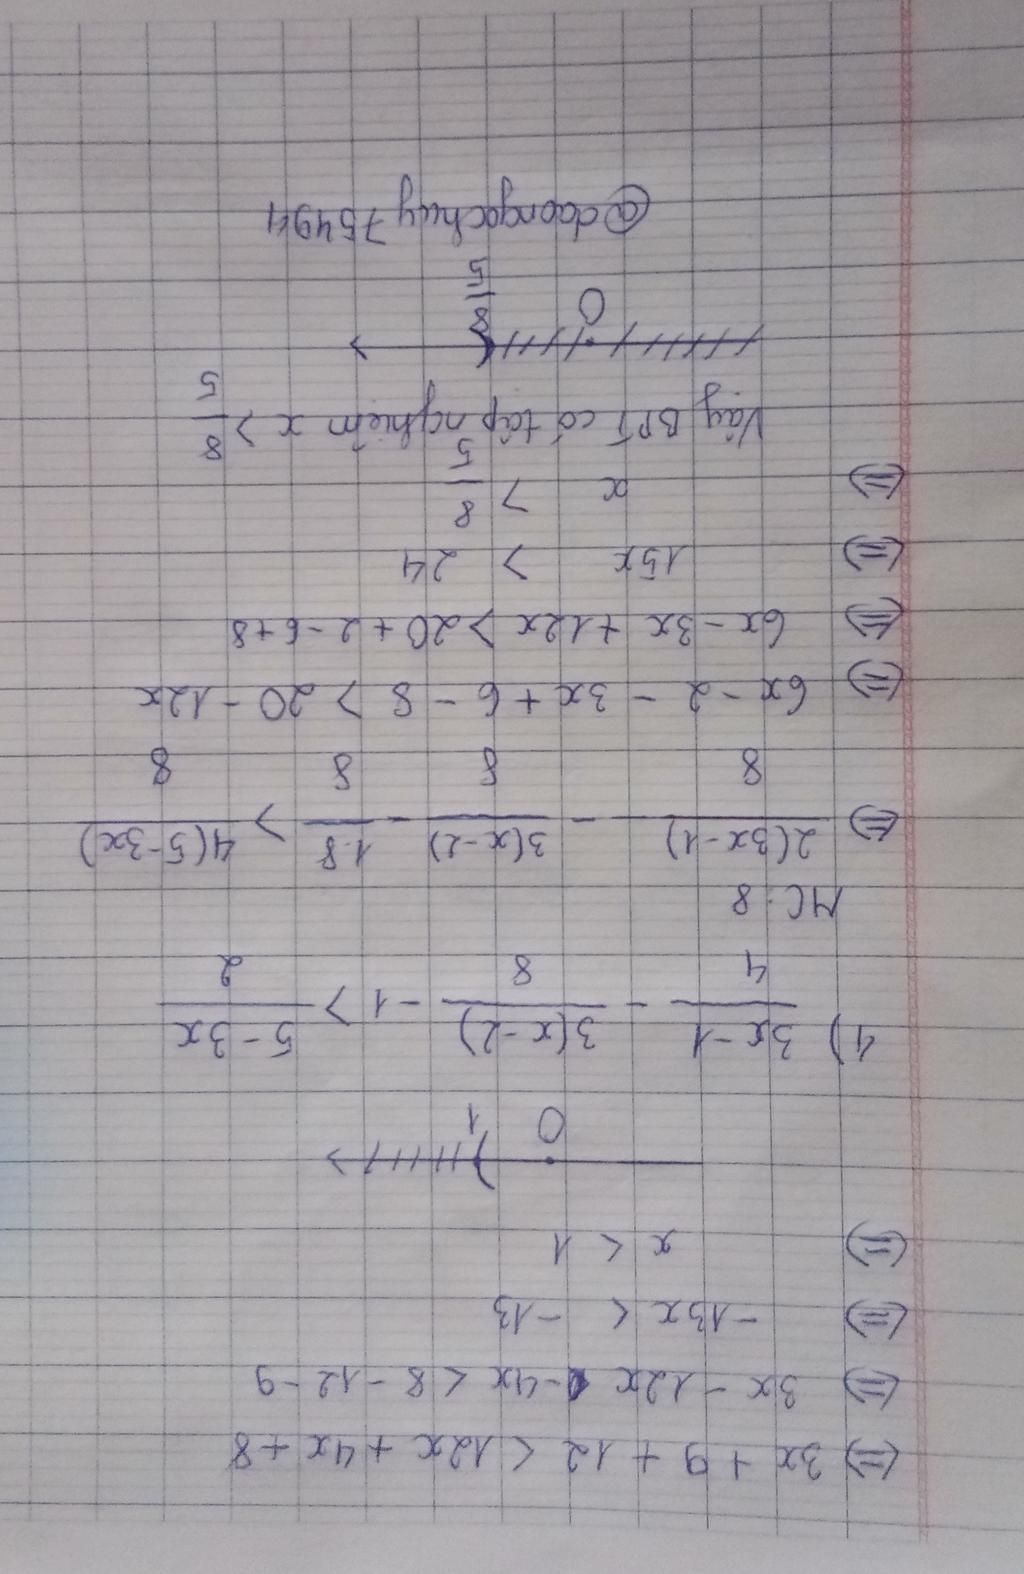 (=) 3x + 9 + 12 < 12x + 4x + 8
(=) 3x - 12x - 4x < 8 - 12 - 9
(=) -13x < -13
(=) x < 1
0 1
4) (3x-1)/4 - 3(x-2)/8 - 1 > (5-3x)/2
MC: 8
(=) 2(3x-1)/8 - 3(x-2)/8 - 1.8/8 > 4(5-3x)/8
(=) 6x - 2 - 3x + 6 - 8 > 20 - 12x
(=) 6x - 3x + 12x > 20 + 2 - 6 + 8
(=) 15x > 24
(=) x > 8/5
Vậy BPT có tập nghiệm x > 8/5
0 8/5
@daongochuy75494